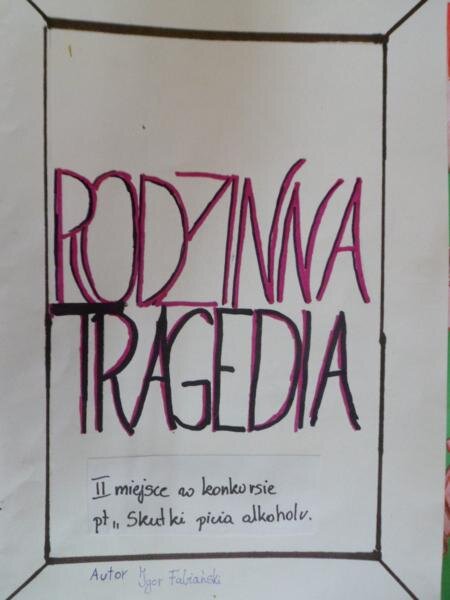 RODZINNA
TRAGEDIA
II miejsce w konkursie
pt „ Skutki picia alkoholu.
Autor Igor Fabiański